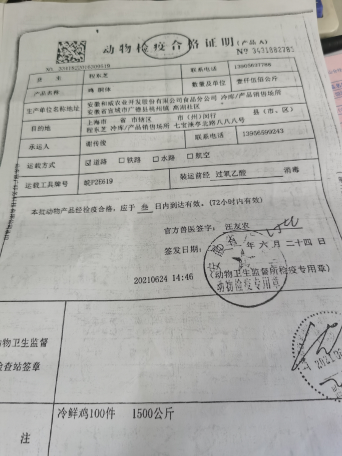 动物检疫合格证明(产品A)
货 主 程东芝 联系电话
产品名称 鸡 胴体 数量及单位 壹仟伍佰公斤
生产单位名称地址 安徽和威农业开发股份有限公司食品分公司 冷库/产品销售场所
安徽省宣城市广德县杭州镇 高湖社区
目的地 上海市 省 市辖区 市(州)闵行 县(市、区)
程东芝 冷库/产品销售场所 七宝镇华北路八八八号
承运人 谢传俊 联系电话 13956599243
运载方式 ☑道路 □铁路 □水路 □航空
运载工具牌号 皖P2E619 装运前经 过氧乙酸 消毒
本批动物产品经检疫合格,应于 叁 日内到达有效。(72小时内有效)
官方兽医签字: 汪友农
签发日期: 年 六 月 二十四 日
20210624 14:46 (动物卫生监督所检疫专用章)
动物检疫专用章
动物卫生监督
检查站签章
冷鲜鸡100件 1500公斤
注